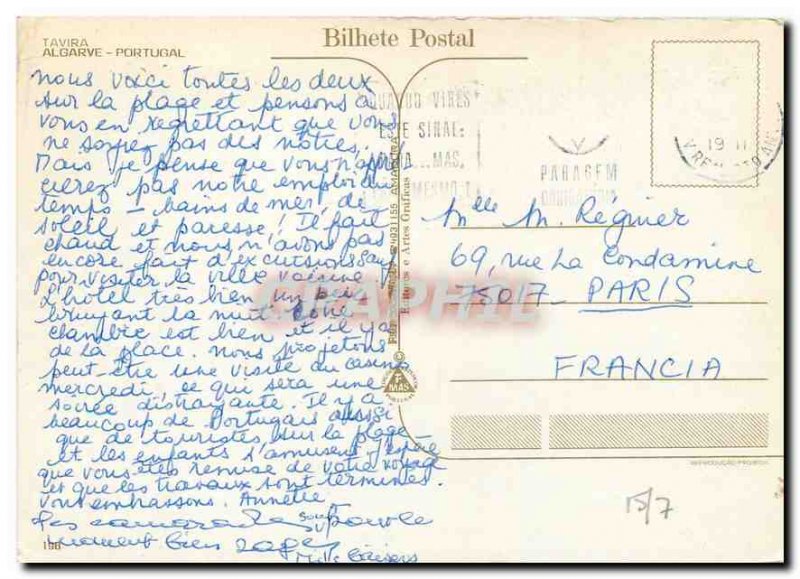 TAVIRA
ALGARVE - PORTUGAL
Bilhete Postal
nous voici toutes les deux
sur la plage et pensons à
vous en regrettant que vous
ne soyez pas des nôtres.
Mais je pense que vous n'appré
cierez pas notre emploi du
temps - bains de mer, de
soleil et paresse! Il fait
chaud et nous n'avons pas
encore fait d'excursions sauf
pour visiter la ville voisine
L'hôtel très bien un peu
bruyant la nuit notre
chambre est bien et il y a
de la place. nous projetons
peut-être une visite au casino
mercredi, ce qui sera une
soirée distrayante. Il y a
beaucoup de Portugais aussi
que de touristes, sur la plage
et les enfants s'amusent. J'espère
que vous êtes remise de votre voyage
et que les travaux sont terminés.
vous embrassons. Annette
Les camarades sont pour le
moment bien sages
Mille baisers
198
QUANDO VIRES
ESTE SINAL:
MAS,
PARAGEM
19 II
Mlle M. Régnier
69, rue La Condamine
75017 - PARIS
FRANCIA
e Artes Gráficas
AMADORA
MAS
REPRODUÇÃO PROIBIDA
15/7
CPAPHIL